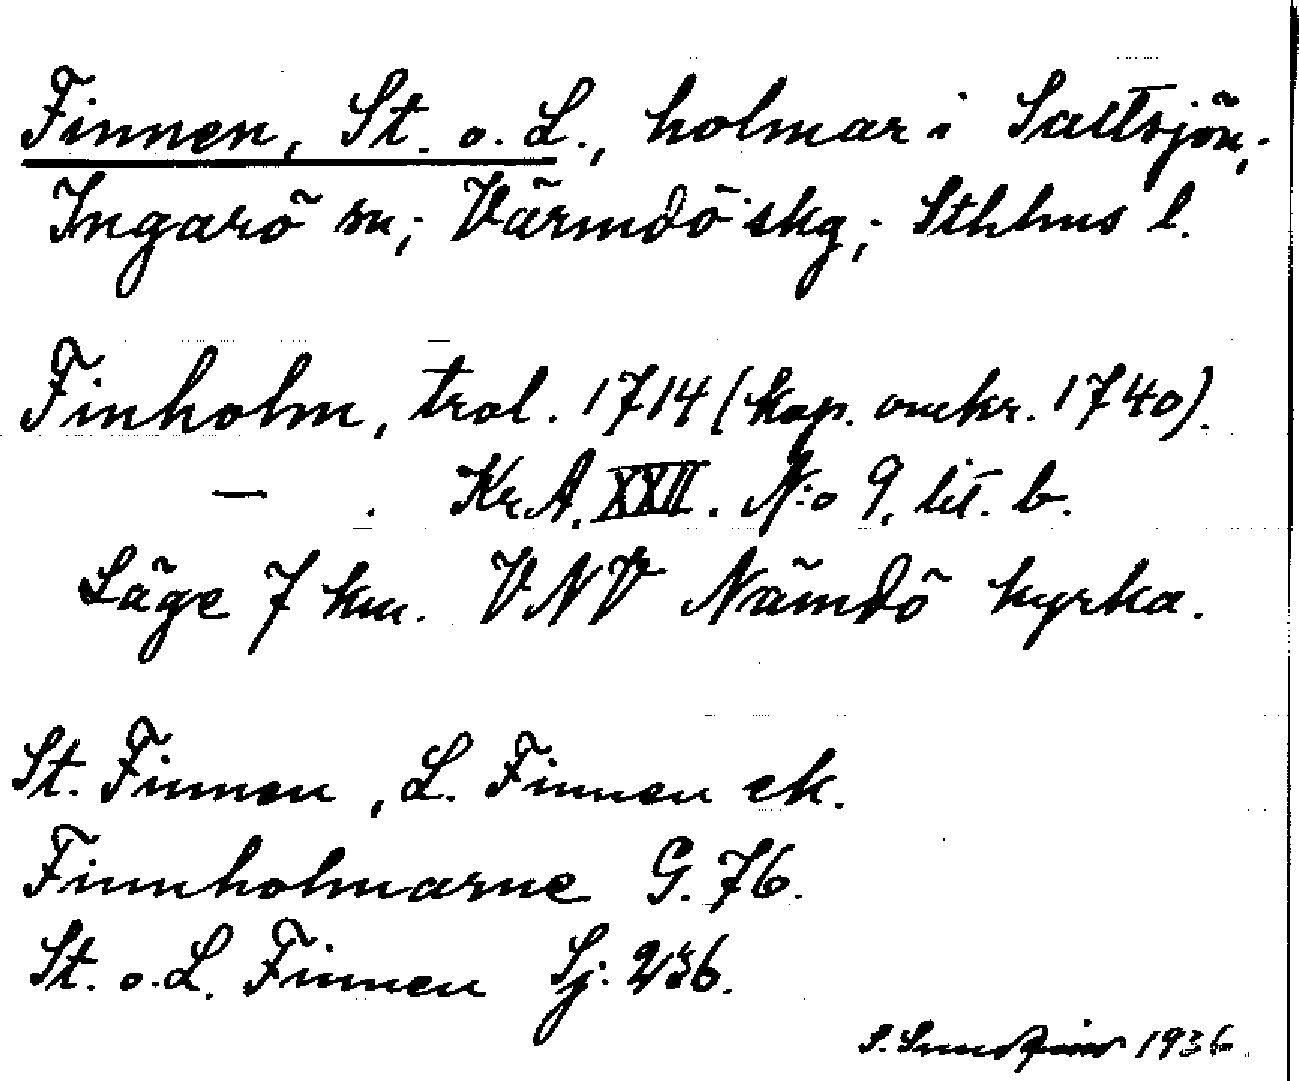 Finnen, St. o. L., holmar i Saltsjön;
Ingarö sn; Värmdö skg; Sthlms l.
Finholm, trol. 1714 (kop. omkr. 1740).
— . Kr.A. XXII. N:o 9. lit. b.
Läge 7 km. VNV Nämdö kyrka.
St. Finnen, L. Finnen ek.
Finnholmarne G. 76.
St. o. L. Finnen Sj: 236.
S. 1936